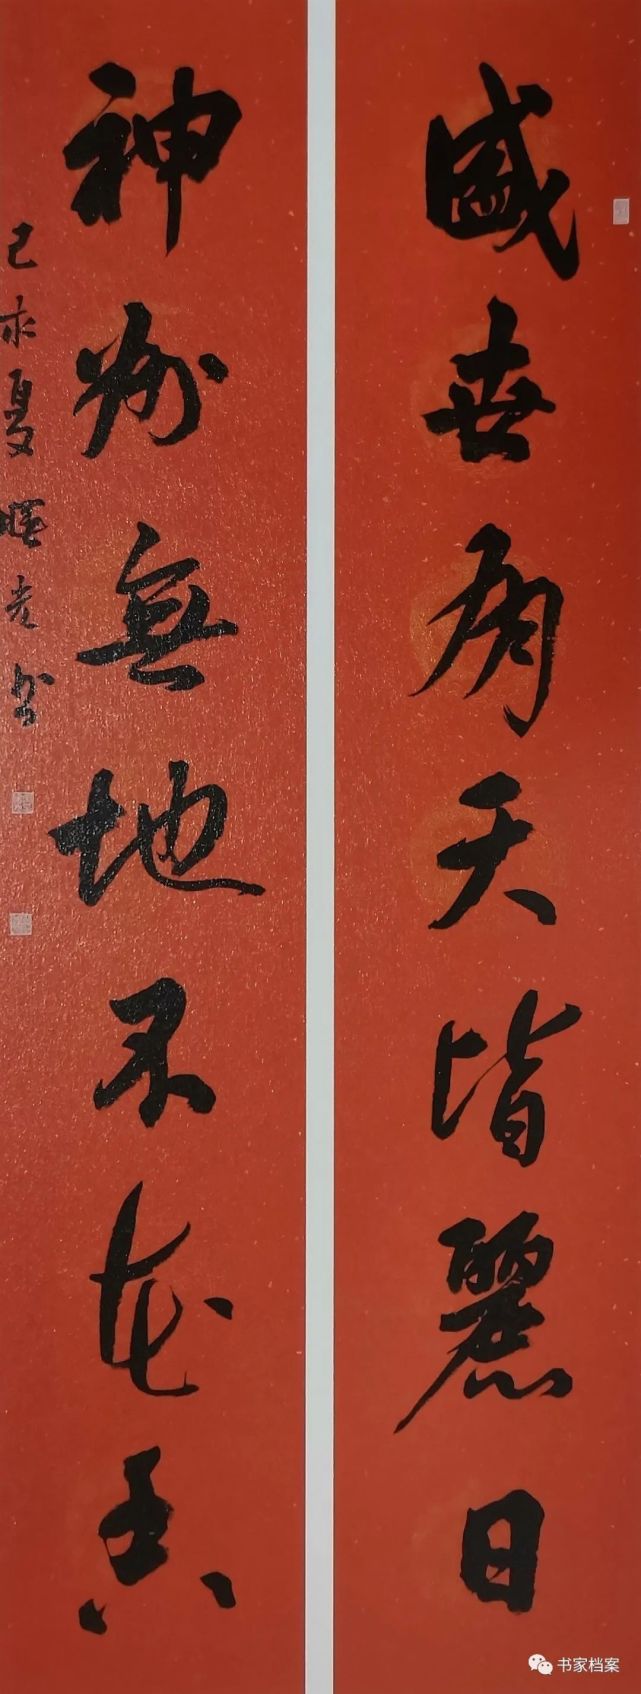 盛世有天皆麗日
神州無地不花香
己亥夏曙光书
书家档案